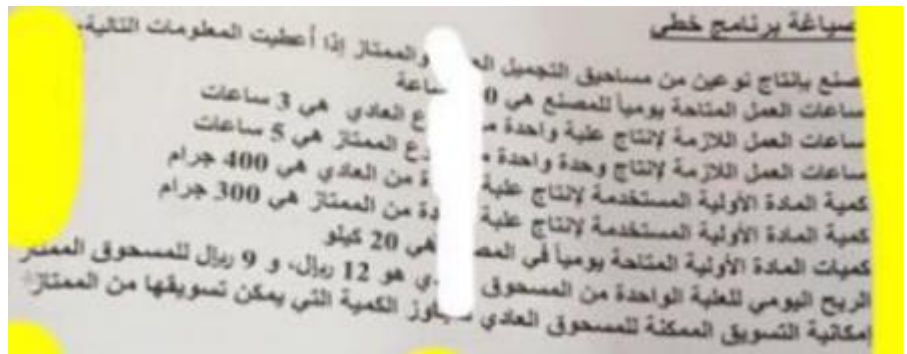 صياغة برنامج خطي
صنع بإنتاج نوعين من مساحيق التجميل والممتاز إذا أعطيت المعلومات التالية:
ساعات العمل المتاحة يومياً للمصنع هي ساعة
ساعات العمل اللازمة لإنتاج علبة واحدة العادي هي 3 ساعات
ساعات العمل اللازمة لإنتاج وحدة واحدة الممتاز هي 5 ساعات
كمية المادة الأولية المستخدمة لإنتاج علبة من العادي هي 400 جرام
كمية المادة الأولية المستخدمة لإنتاج علبة من الممتاز هي 300 جرام
كميات المادة الأولية المتاحة يومياً في هي 20 كيلو
الربح اليومي للعلبة الواحدة من المسحوق هو 12 ريال، و 9 ريال للمسحوق الممتاز
إمكانية التسويق الممكنة للمسحوق العادي الكمية التي يمكن تسويقها من الممتاز